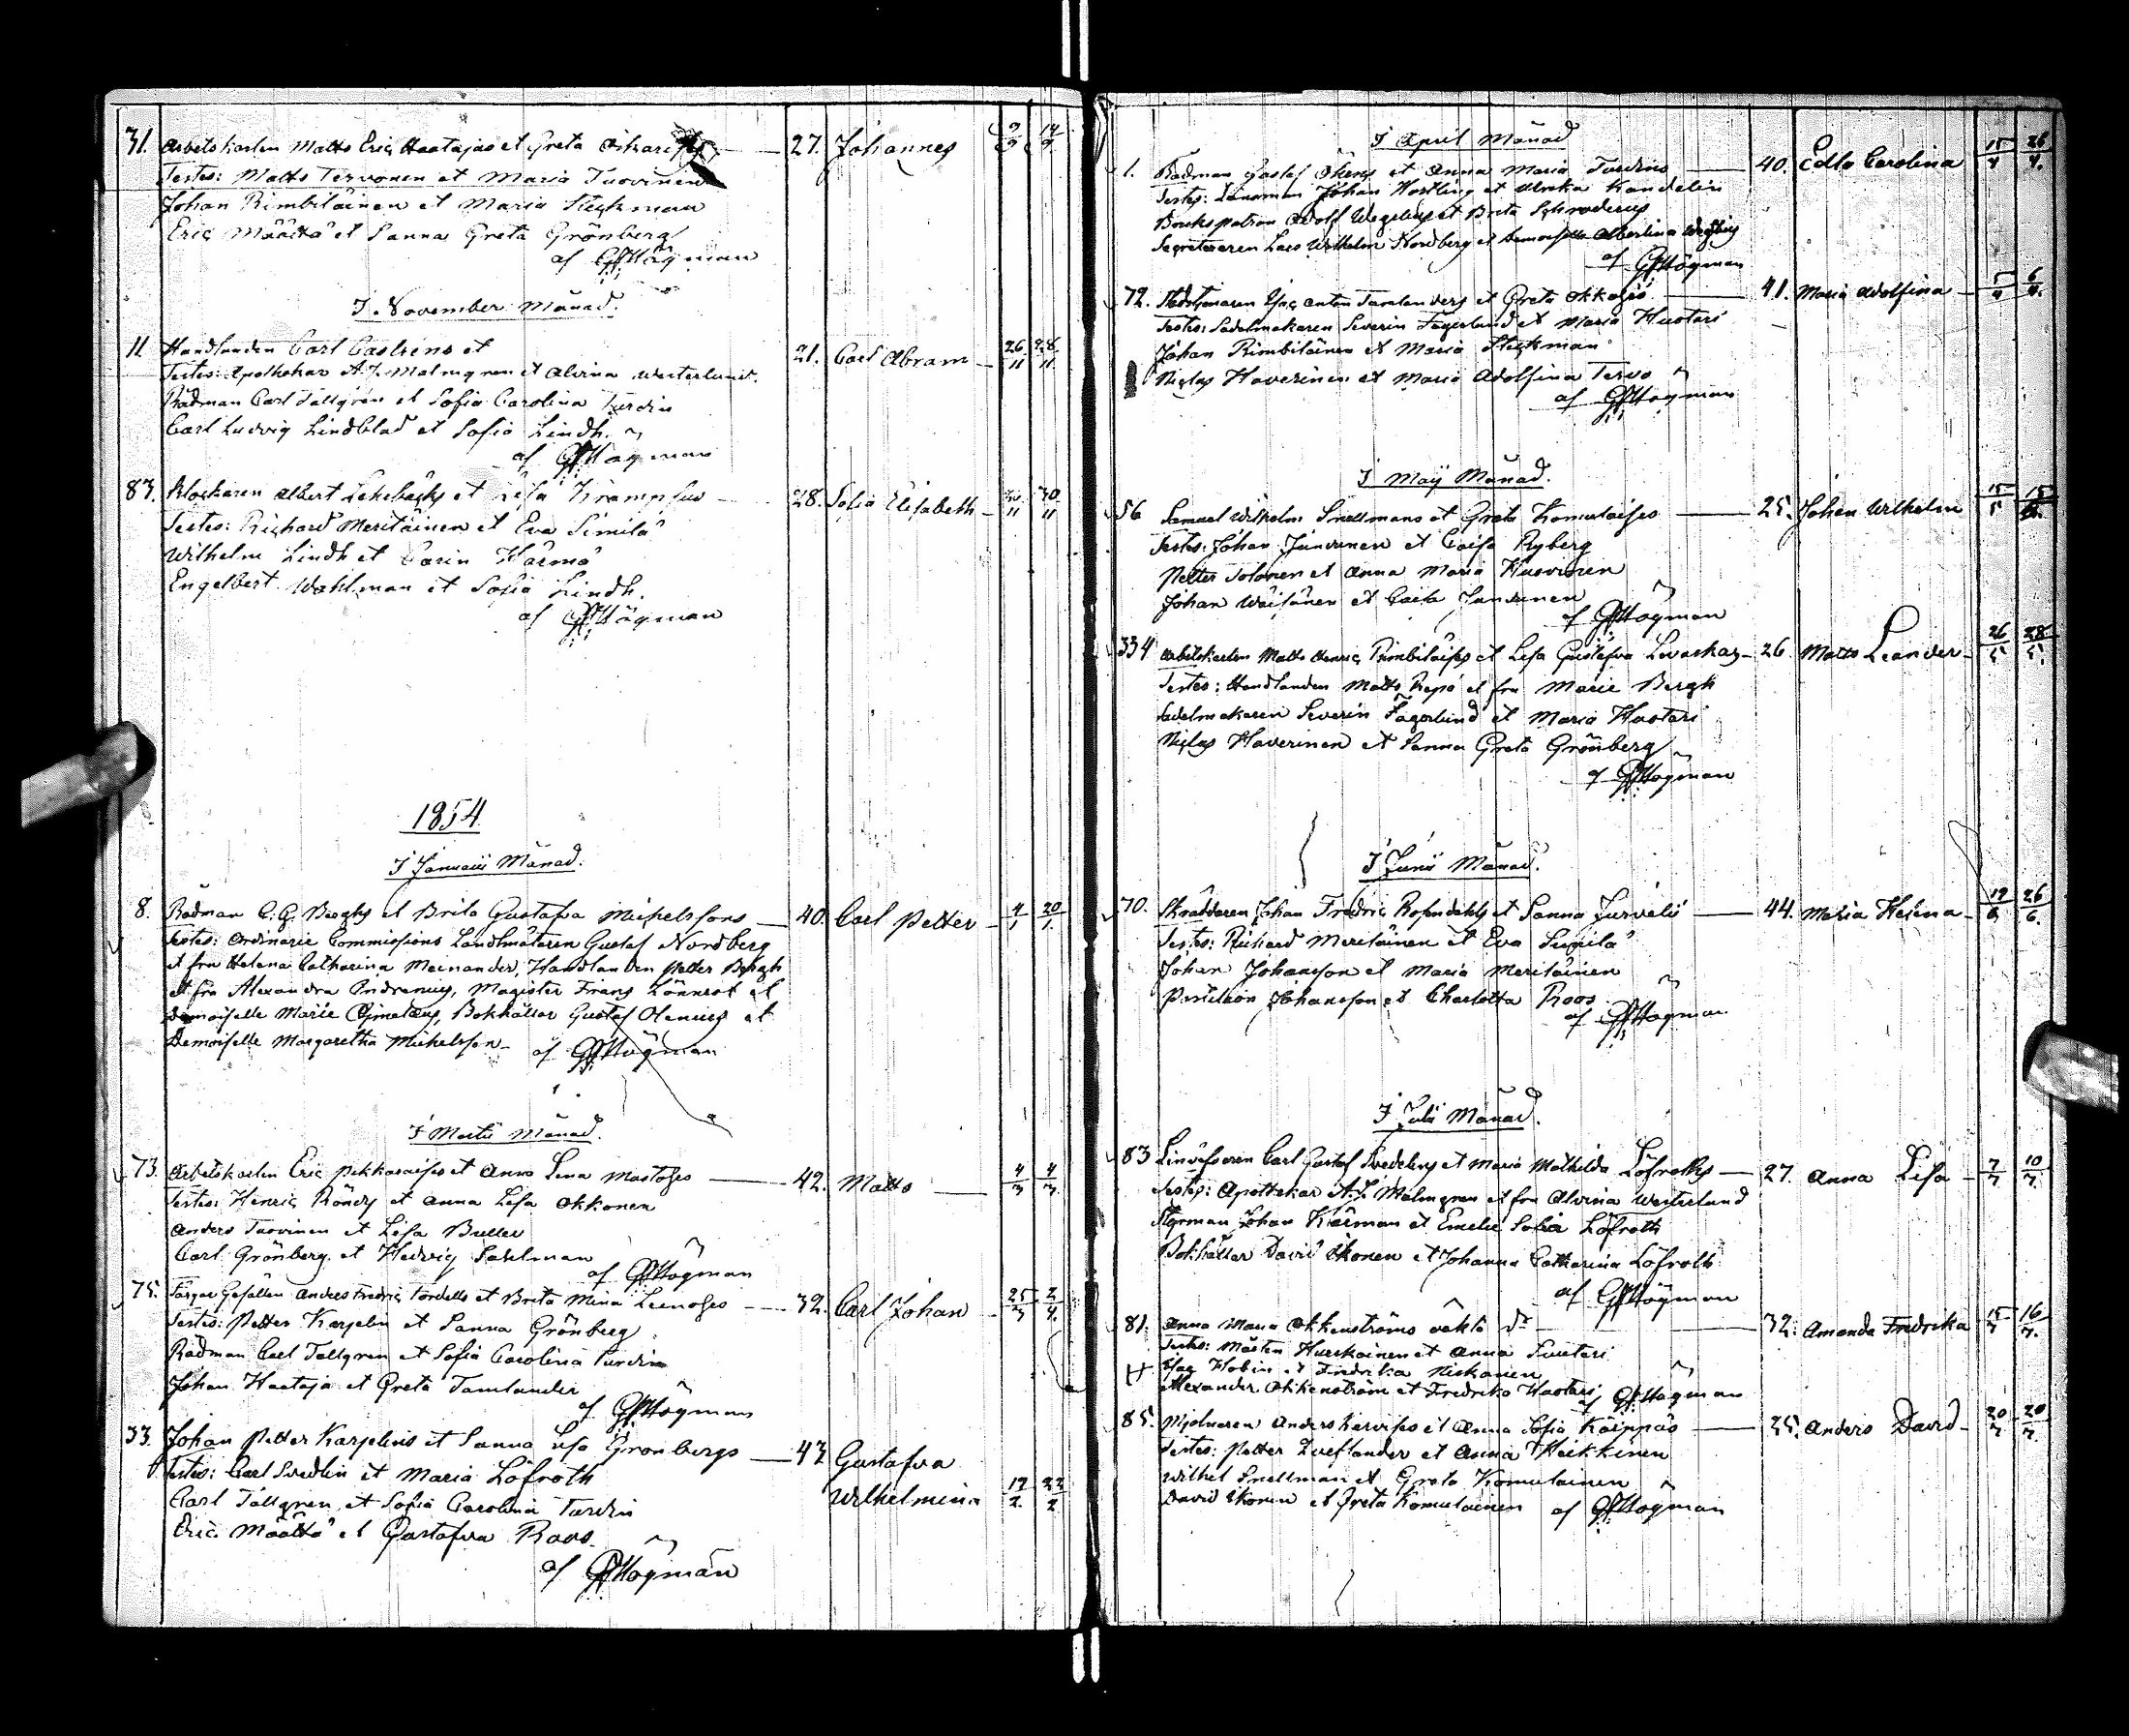 31. Arbetskarlen Matts Eric Haatajas et Greta — 27. Johannes 9/9 14/9
Testes: Matts Tervonen et Maria Tuovinen
Johan Rimbiläinen et Maria Steckman
Eric Määttä et Sanna Greta Grönberg
af GFHögman
I November Månad.
11 Handlanden Carl Castrens et 21. Carl Abram 26/11 28/11
Testes: Apothekar A. F. Malmgren et Alvina Westerlund.
Rådman Carl Tällgren et Sofia Carolina Turdin
Carl Ludvig Lindblad et Sofia Lindh.
af GFHögman
83. Klockaren Albert et Lisa 28. Sofia Elisabeth 30/11
Testes: Richard Meriläinen et Eva Similä
Wilhelm Lindh et Carin Härmä
Engelbert Wahlman et Sofia Lindh.
af GFHögman
1854.
I Januarii Månad.
8. Rådman C. G. Berghs et Brita Gustafva Michelssons — 40. Carl Petter 4/1 20/1
Testes: Ordinarie Commissions Landtmätaren Gustaf Nordberg
et fru Helena Catharina Meinander, Handlanden Petter Bergh
et fru Alexandra, Magister Frans Lönnrot et
Demoiselle Marie, Bokhållar Gustaf Olenius et
Demoiselle Margaretha Michelsson
af GFHögman
I Martii Månad.
73. Arbetskarlen Eric Pikkaraises et Anna Lena — 42. Matts 4/3 4/3
Testes: Henric et Anna Lisa Okkonen
Anders Tuovinen et Lisa Buller
Carl Grönberg et Hedvig Sahlman
af GFHögman
75. Färgar Gesällen Anders Fredric Tordells et Brita Mina — 32. Carl Johan 25/3 2/4
Testes: Petter Karjelin et Sanna Grönberg
Rådman Carl Tallgren et Sofia Carolina Turdin
Johan Haataja et Greta Tamlander
af GFHögman
33. Johan Petter Karjelins et Sanna Lisa Grönbergs — 43 Gustafva
Testes: Carl Svedlin et Maria Löfroth
Wilhelmina 22/2
Carl Tällgren et Sofia Carolina Turdin
Eric Määttä et Gustafva Roos
af GFHögman
I April Månad
1. Rådman Gustaf et Anna Maria Turdins — 40. Edla Carolina 15/4 26/4
Testes: Länsman Johan et Ulrika Kandelin
Bruks patron Adolf Wegelius et Brita Schroderus
Secreteraren Lars Wilhelm Nordberg et Demoiselle Albertina
af GFHögman
72. Anton Tamlanders et Greta Okkosis — 41. Maria Adolfina 5/4 6/4
Testes: Sadelmakaren Severin Fagerlund et Maria Huotari
Johan Rimbiläinen et Maria Steckman
Niclas Haverinen et Maria Adolfina Tervo
af GFHögman
I Maij Månad.
56 Samuel Wilhelm Snellmans et Greta Komulaises — 25. Johan Wilhelm 15/5
Testes: Johan Junnunen et Caisa Ryberg
Petter Tolonen et Anna Maria Huovinen
Johan Wäisänen et Caisa Junnunen
af GFHögman
334 Arbetskarlen Matts Henric Rimbiläises et Lisa Gustafva — 26. Matts Leander 26/5 28/5
Testes: Handlanden Matts Repo et fru Marie Bergh
Sadelmakaren Severin Fagerlund et Maria Huotari
Niclas Haverinen et Sanna Greta Grönberg
af GFHögman
I Junii Månad.
70. Skräddaren Johan Fredric Rosendahls et Sanna — 44. Maria Helena 26/6
Testes: Richard Meriläinen et Eva Similä
Johan Johansson et Maria Meriläinen
Postiljon Johansson et Charlotta Roos
af GFHögman
I Julii Månad.
83 Carl Gustaf et Maria Mathilda Löfroths — 27. Anna Lisa 7/7 10/7
Testes: Apothekar A. F. Malmgren et fru Alvina Westerlund
Styrman Johan et Emelie Sofia Löfroth
Bokhållar David Ikonen et Johanna Catharina Löfroth
af GFHögman
81. Anna Maria Okkenströms oäkta dr — 32. Amanda Fredrika 15/7 16/7
Testes: Mårten Hurskainen et Anna
et Fredrika Niskanen
Alexander Okkenström et Fredrika Huotari
af GFHögman
85. Mjölnaren Anders et Anna Sofia Käippäs — 25. Anders David 20/7 20/7
Testes: Petter et Anna Heikkinen
Wilhel Snellman et Greta Komulainen
David Ikonen et Greta Komulainen
af GFHögman